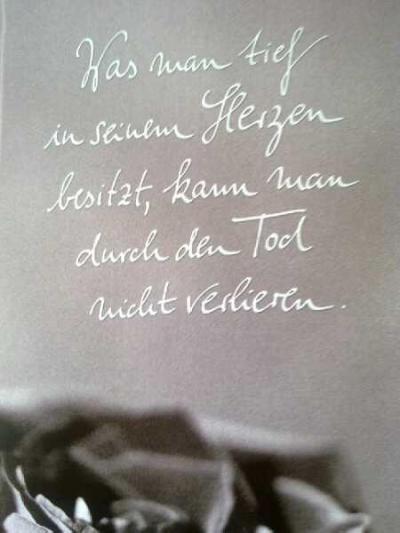 Was man tief
in seinem Herzen
besitzt, kann man
durch den Tod
nicht verlieren.